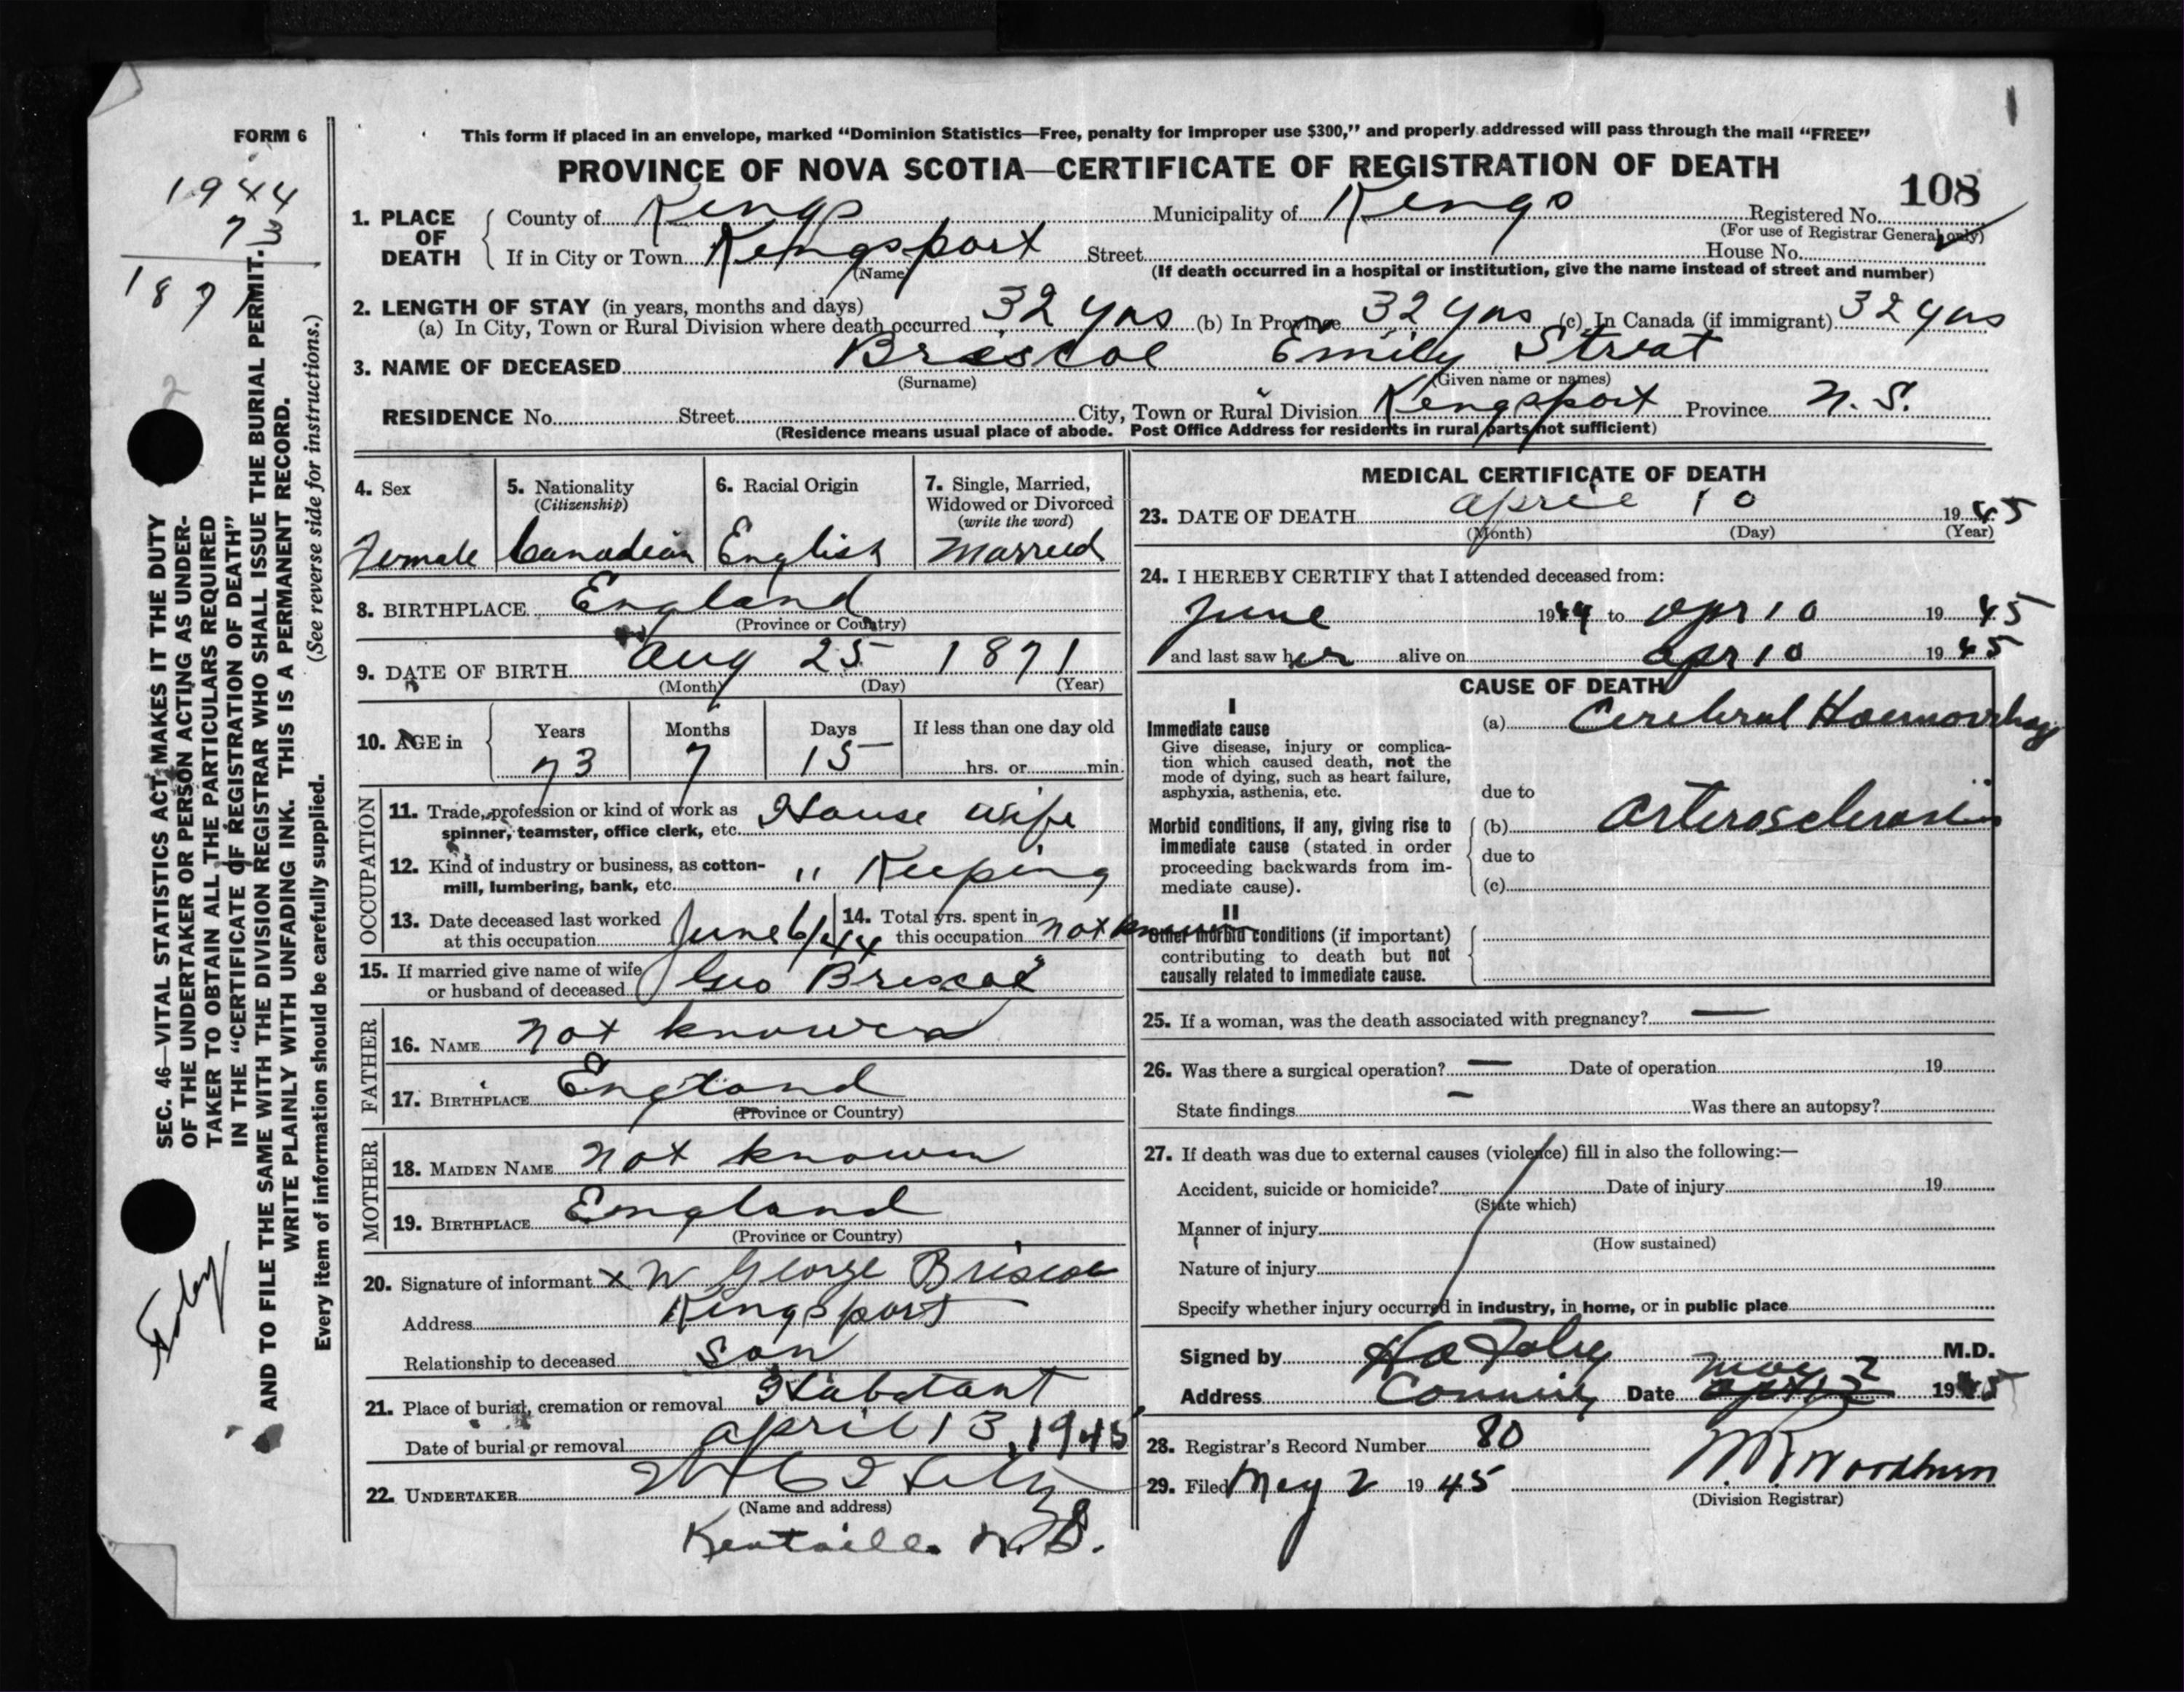 FORM 6
This form if placed in an envelope, marked "Dominion Statistics—Free, penalty for improper use $300," and properly addressed will pass through the mail "FREE"
PROVINCE OF NOVA SCOTIA—CERTIFICATE OF REGISTRATION OF DEATH
108
1944
73
1871
1. PLACE OF DEATH County of Kings Municipality of Kings Registered No.
(For use of Registrar General only)
If in City or Town Kingsport Street House No.
(Name) (If death occurred in a hospital or institution, give the name instead of street and number)
2. LENGTH OF STAY (in years, months and days)
(a) In City, Town or Rural Division where death occurred 32 yrs (b) In Province 32 yrs (c) In Canada (if immigrant) 32 yrs
3. NAME OF DECEASED Briscoe Emily Streat
(Surname) (Given name or names)
RESIDENCE No. Street City, Town or Rural Division Kingsport Province N.S.
(Residence means usual place of abode. Post Office Address for residents in rural parts not sufficient)
4. Sex Female
5. Nationality (Citizenship) Canadian
6. Racial Origin English
7. Single, Married, Widowed or Divorced (write the word) Married
8. BIRTHPLACE England
(Province or Country)
9. DATE OF BIRTH Aug 25 1871
(Month) (Day) (Year)
10. AGE in Years Months Days If less than one day old
73 7 15 hrs. or min.
OCCUPATION
11. Trade, profession or kind of work as
spinner, teamster, office clerk, etc. House wife
12. Kind of industry or business, as cotton-
mill, lumbering, bank, etc. " Keeping
13. Date deceased last worked
at this occupation June 6/44
14. Total yrs. spent in
this occupation not known
15. If married give name of wife
or husband of deceased Geo Briscoe
FATHER
16. NAME not known
17. BIRTHPLACE England
(Province or Country)
MOTHER
18. MAIDEN NAME not known
19. BIRTHPLACE England
(Province or Country)
20. Signature of informant x W George Briscoe
Address Kingsport
Relationship to deceased Son
21. Place of burial, cremation or removal Habitant
Date of burial or removal April 13, 1945
22. UNDERTAKER
(Name and address)
Kentville N.S.
MEDICAL CERTIFICATE OF DEATH
23. DATE OF DEATH April 10 1945
(Month) (Day) (Year)
24. I HEREBY CERTIFY that I attended deceased from:
June 1944 to Apr 10 1945
and last saw her alive on Apr 10 1945
CAUSE OF DEATH
I
Immediate cause
Give disease, injury or complica-
tion which caused death, not the
mode of dying, such as heart failure,
asphyxia, asthenia, etc.
(a) Cerebral Haemorrhag
due to
Morbid conditions, if any, giving rise to
immediate cause (stated in order
proceeding backwards from im-
mediate cause).
(b) Arterosclerosis
due to
(c)
II
Other morbid conditions (if important)
contributing to death but not
causally related to immediate cause.
25. If a woman, was the death associated with pregnancy? —
26. Was there a surgical operation? — Date of operation 19
State findings — Was there an autopsy?
27. If death was due to external causes (violence) fill in also the following:—
Accident, suicide or homicide? Date of injury 19
(State which)
Manner of injury
(How sustained)
Nature of injury
Specify whether injury occurred in industry, in home, or in public place
Signed by H a Foley M.D.
Address Canning Date May 2 1945
28. Registrar's Record Number 80
29. Filed May 2 1945 W. R. Woodburn
(Division Registrar)
SEC. 46—VITAL STATISTICS ACT MAKES IT THE DUTY
OF THE UNDERTAKER OR PERSON ACTING AS UNDER-
TAKER TO OBTAIN ALL THE PARTICULARS REQUIRED
IN THE "CERTIFICATE OF REGISTRATION OF DEATH"
AND TO FILE THE SAME WITH THE DIVISION REGISTRAR WHO SHALL ISSUE THE BURIAL PERMIT.
WRITE PLAINLY WITH UNFADING INK. THIS IS A PERMANENT RECORD.
Every item of information should be carefully supplied. (See reverse side for instructions.)
Foley